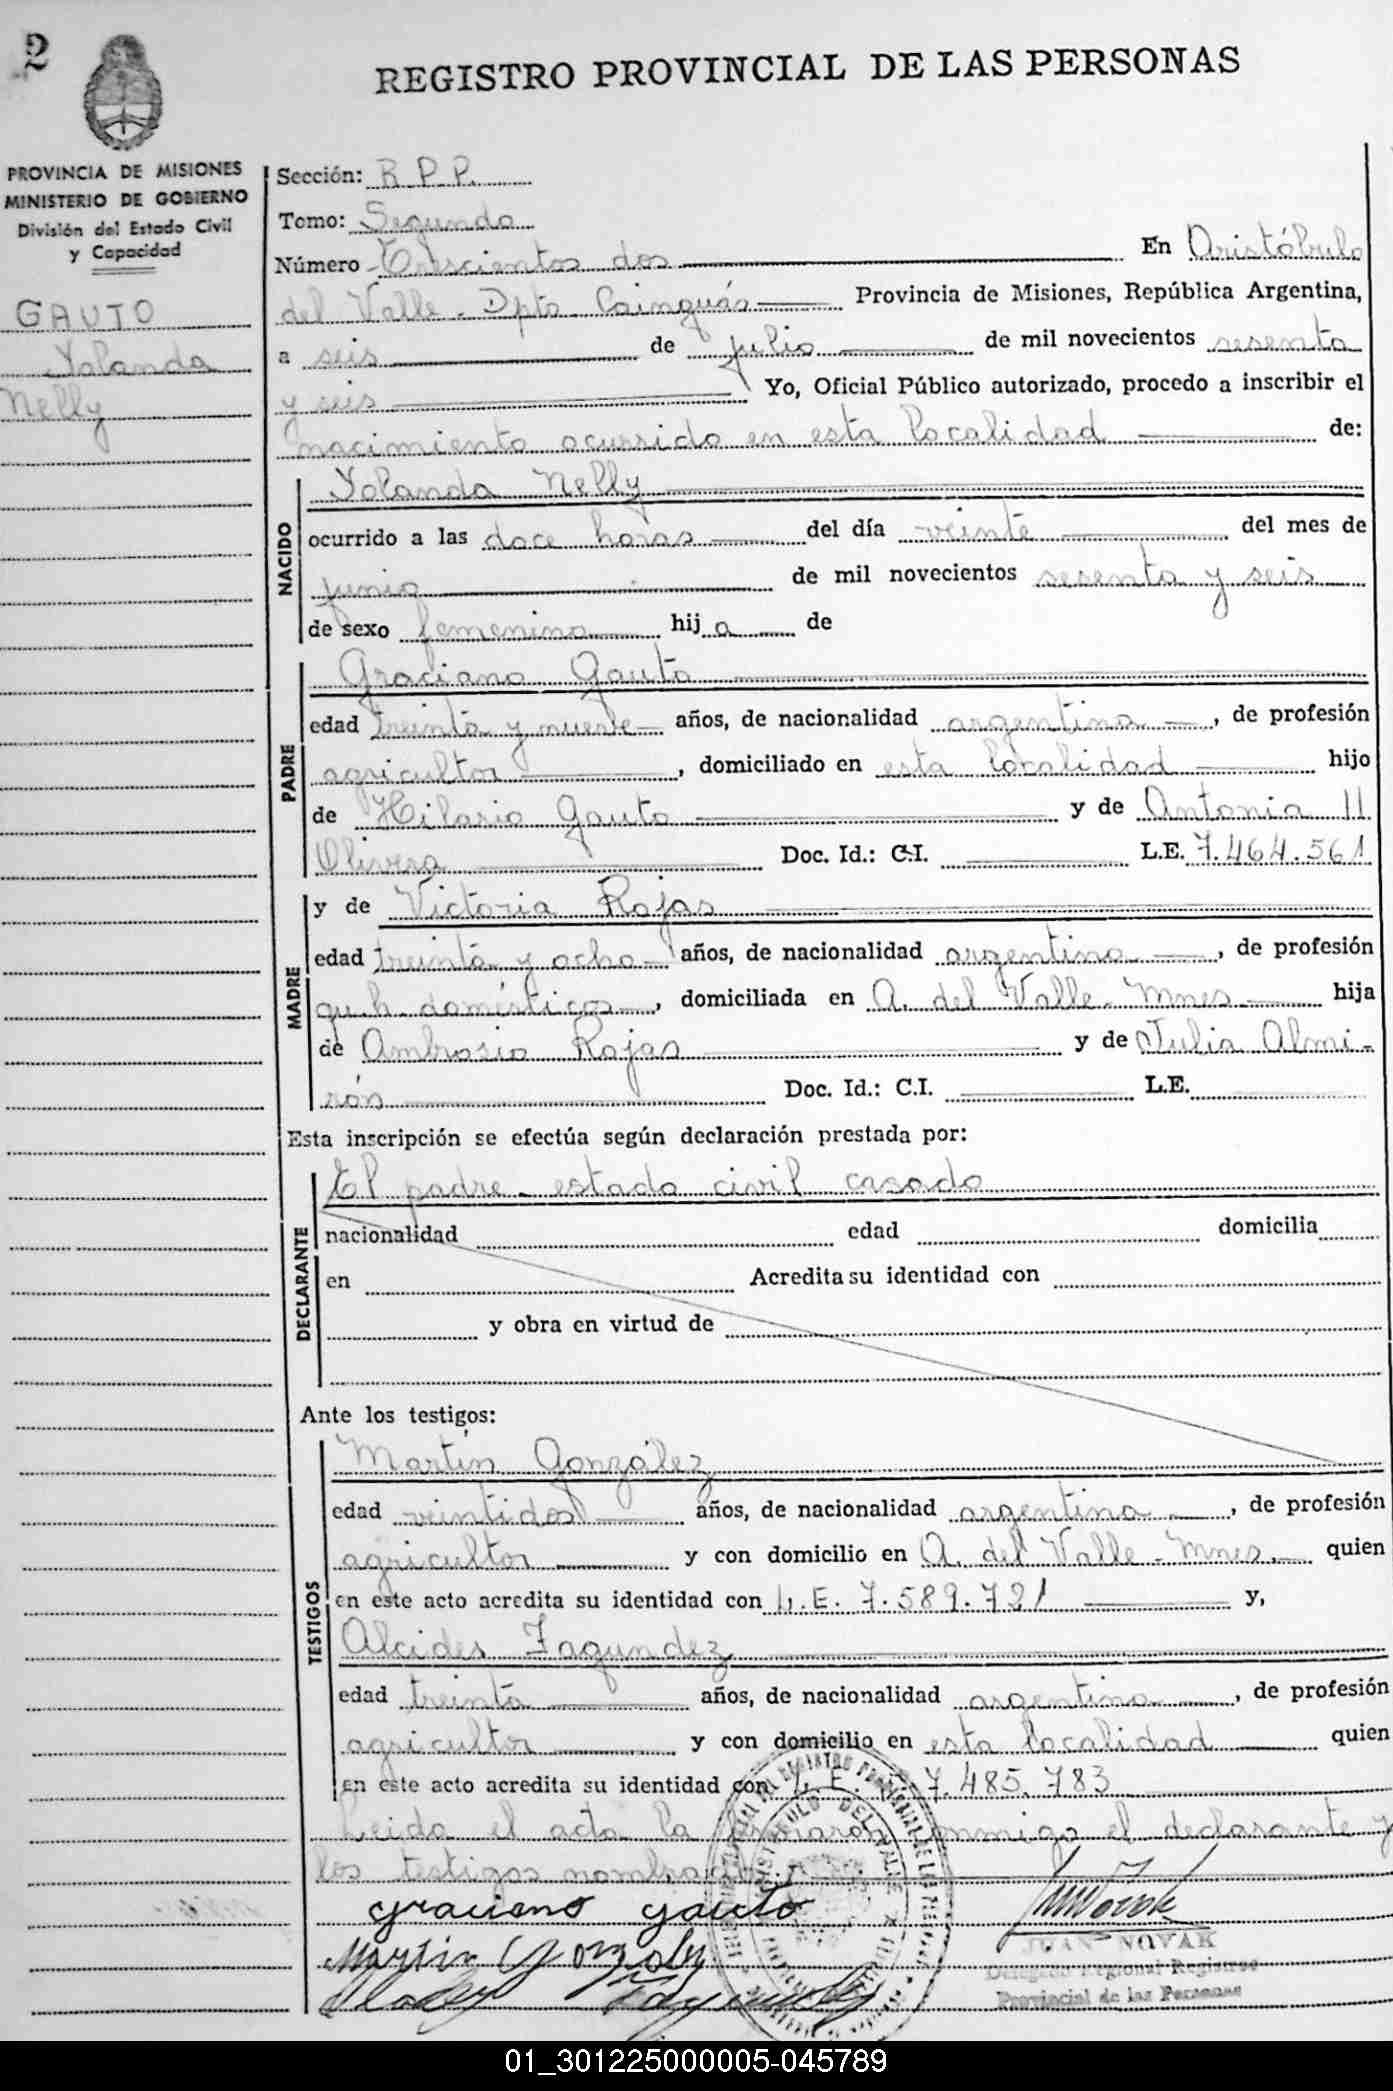 2
REGISTRO PROVINCIAL DE LAS PERSONAS
PROVINCIA DE MISIONES
MINISTERIO DE GOBIERNO
División del Estado Civil
y Capacidad
GAUTO
Yolanda
Nelly
Sección: R.P.P.
Tomo: Segundo
Número Trescientos dos En Aristóbulo
del Valle. Dpto. Cainguás Provincia de Misiones, República Argentina,
a seis de julio de mil novecientos sesenta
y seis Yo, Oficial Público autorizado, procedo a inscribir el
nacimiento ocurrido en esta localidad de:
NACIDO
Yolanda Nelly
ocurrido a las doce horas del día veinte del mes de
junio de mil novecientos sesenta y seis
de sexo femenino hija de
PADRE
Graciano Gauto
edad treinta y nueve años, de nacionalidad argentina, de profesión
agricultor, domiciliado en esta localidad hijo
de Hilario Gauto y de Antonia
Olivera Doc. Id.: C.I. L.E. 7.464.561
MADRE
y de Victoria Rojas
edad treinta y ocho años, de nacionalidad argentina, de profesión
qu.h. domésticos, domiciliada en A. del Valle. Mnes. hija
de Ambrosio Rojas y de Julia Almi-
rón Doc. Id.: C.I. L.E.
Esta inscripción se efectúa según declaración prestada por:
DECLARANTE
El padre. estado civil casado
nacionalidad edad domicilia
en Acredita su identidad con
y obra en virtud de
Ante los testigos:
TESTIGOS
Martín González
edad veintidos años, de nacionalidad argentina, de profesión
agricultor y con domicilio en A. del Valle. Mnes. quien
en este acto acredita su identidad con L.E. 7.589.721 y,
Alcides Fagundez
edad treinta años, de nacionalidad argentina, de profesión
agricultor y con domicilio en esta localidad quien
en este acto acredita su identidad con L.E. 7.485.783
Leida el acta la firmaron conmigo el declarante y
los testigos nombrados
graciano gauto
Martin Gonzalez
JUAN NOVAK
Delegado Regional Registro
Provincial de las Personas
01_301225000005-045789